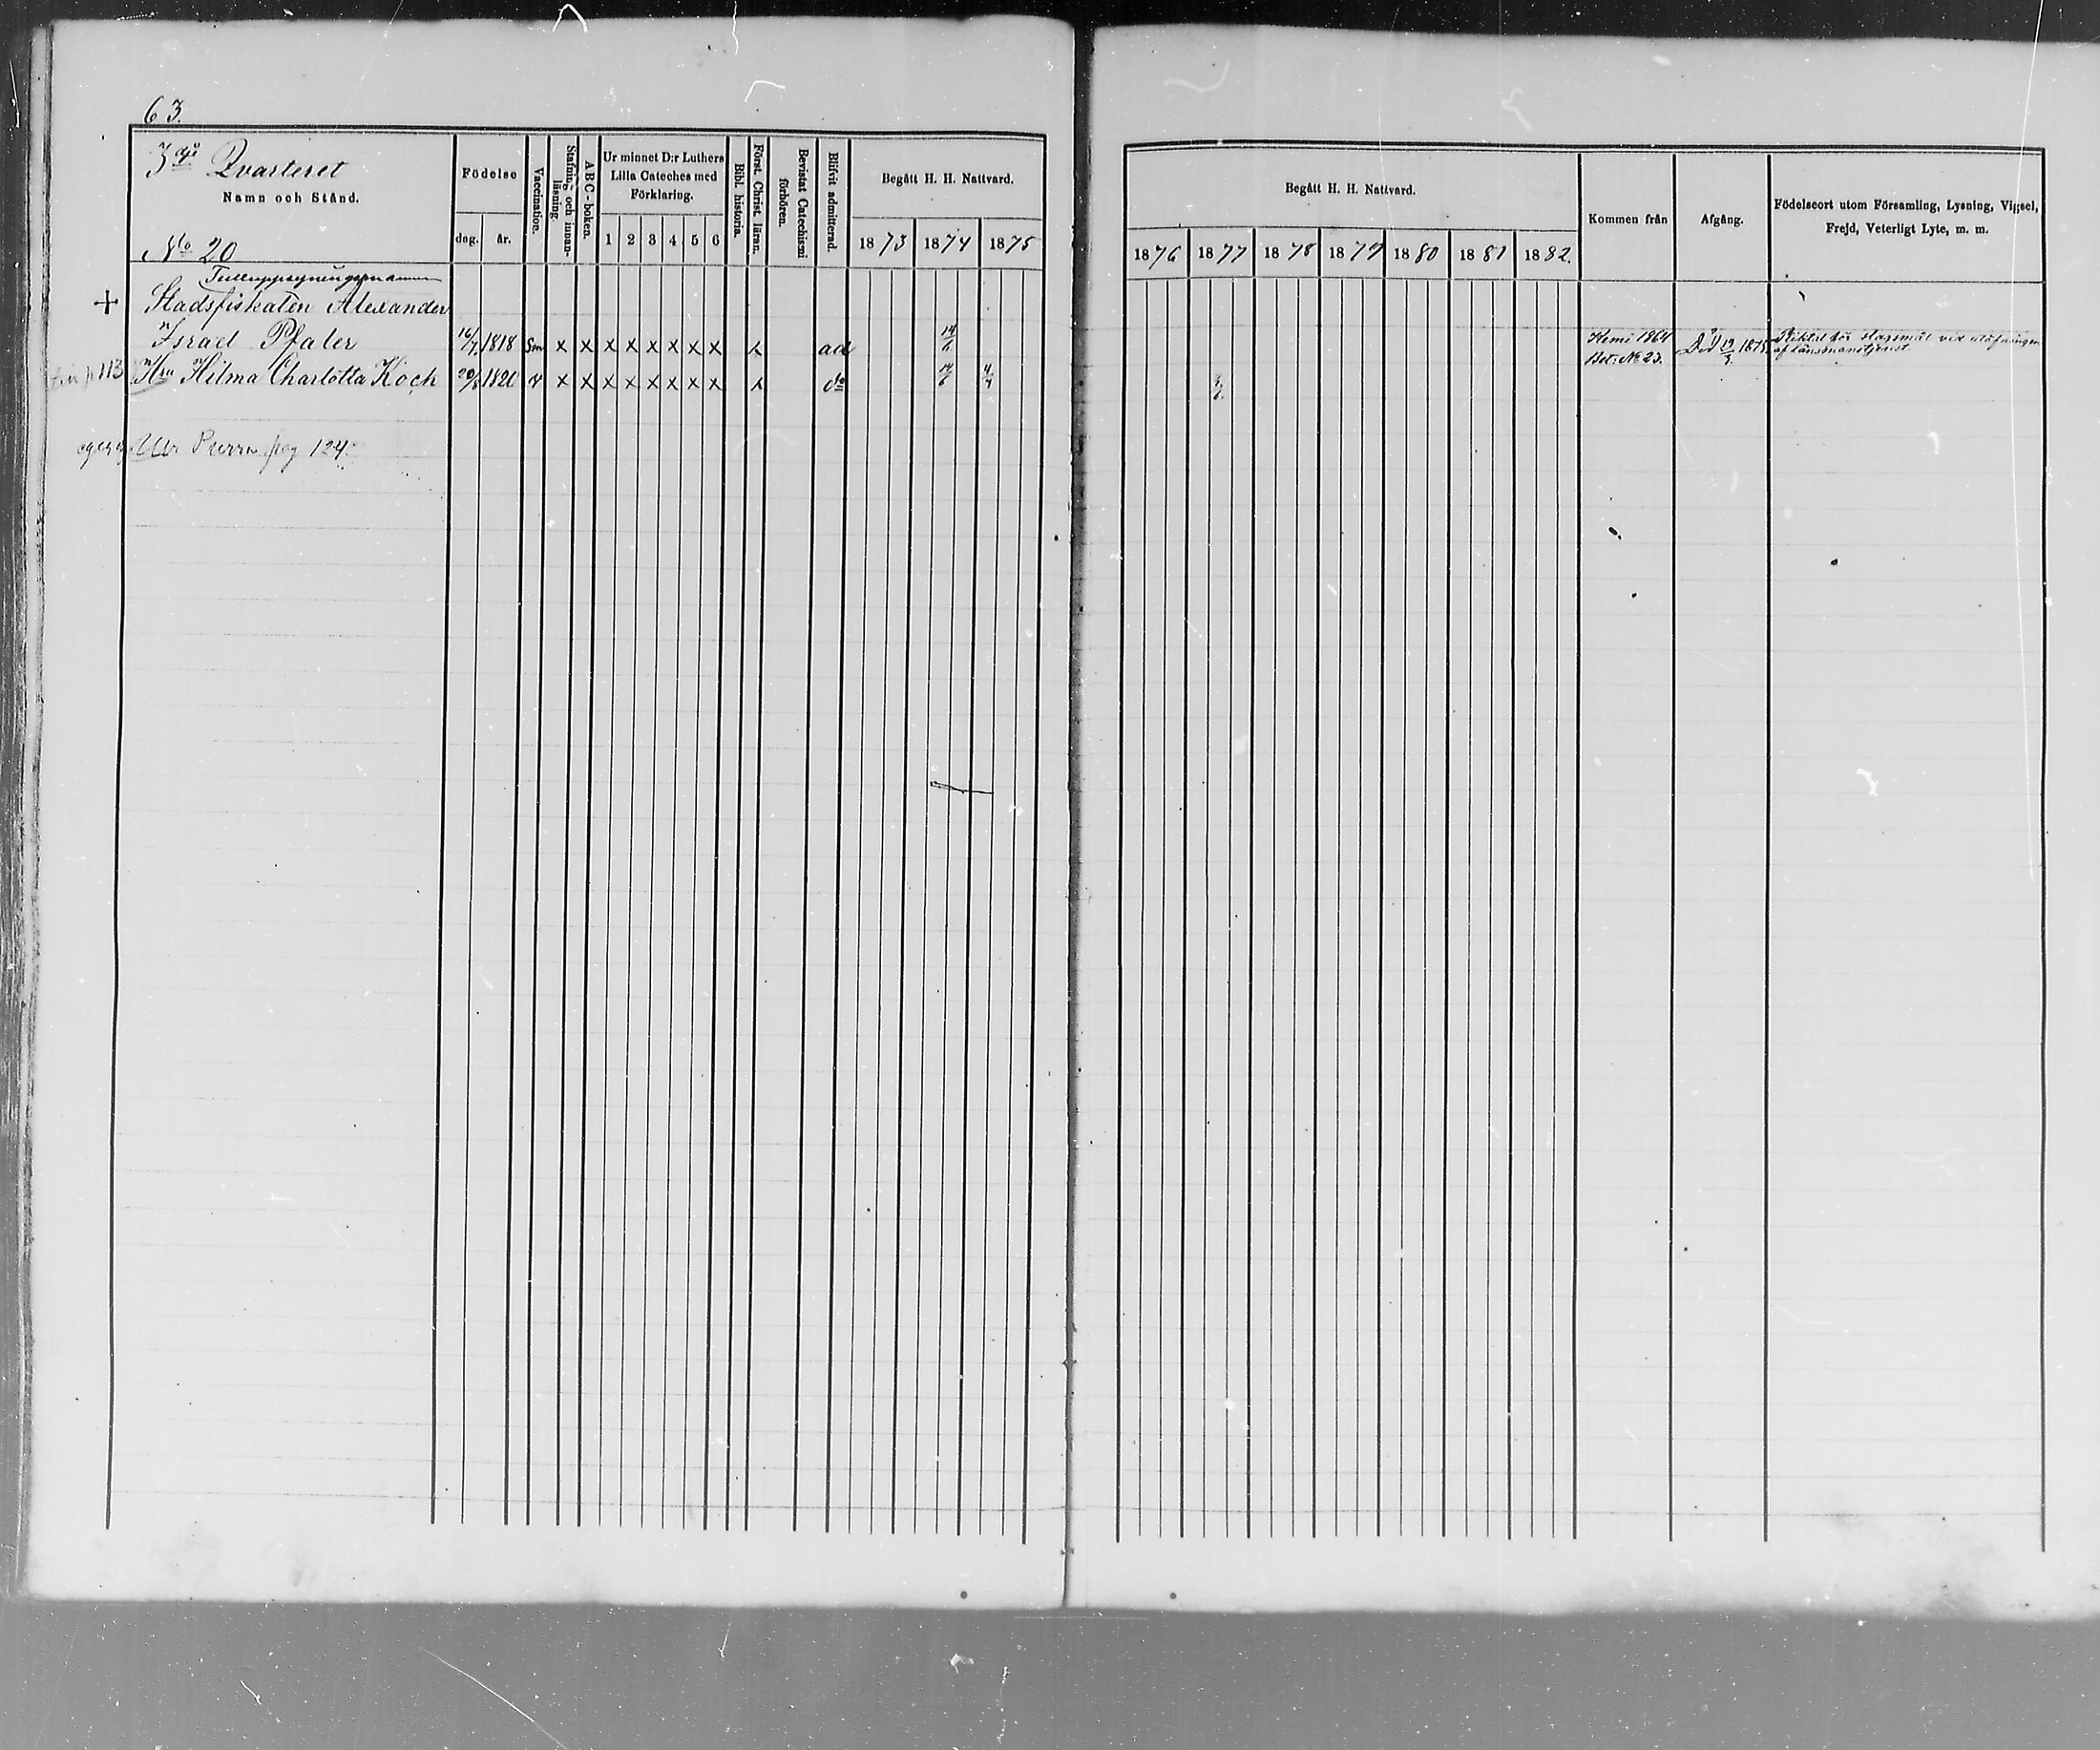 63.
3dje Qvarteret
Namn och Stånd.
No 20
Födelse
dag.
år.
Vaccination.
Stafning och innan-
läsning.
A B C - boken.
Ur minnet D:r Luthers
Lilla Cateches med
Förklaring.
1 2 3 4 5 6
Bibl. historia.
Först. Christ. läran.
Bevistat Catechismi
förhören.
Blifvit admitterad.
Begått H. H. Nattvard.
1873 1874 1875
Begått H. H. Nattvard.
1876 1877 1878 1879 1880 1881 1882.
Kommen från
Afgång.
Födelseort utom Församling, Lysning, Vigsel,
Frejd, Veterligt Lyte, m. m.
Tulluppsyningsmannen
+ Stadsfiskalen Alexander
Israel Pfaler 16/7. 1818 Sm x x x x x x x x x ad 14/6 Kemi 1864 Död 19/3 1878
Bet. No 23. af länsmanstjenst
113 Hu Hilma Charlotta Koch 20/8 1820 v x x x x x x x x x do 14/6 4/4 3/6.
pag 124.